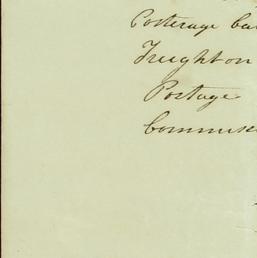 Porterage Ca
Freight on
Postage
Commiss